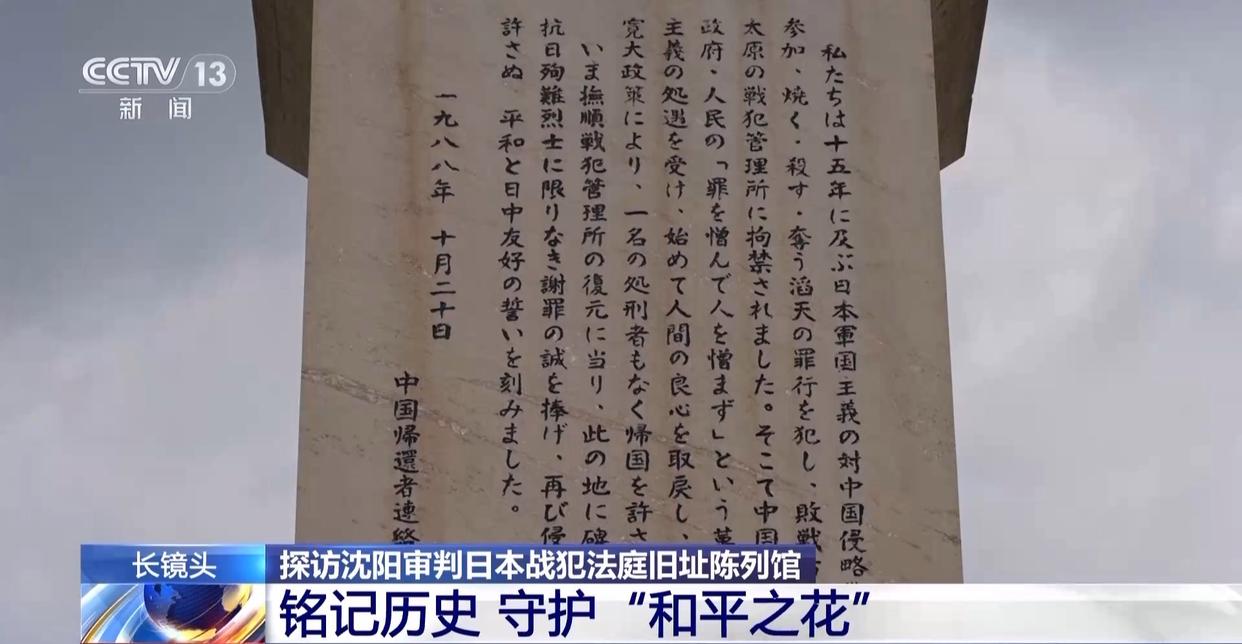 CCTV 13
新闻
私たちは十五年に及ぶ日本軍国主義の対中国侵略
参加、焼く・殺す・奪う滔天の罪行を犯し、敗戦
太原の戦犯管理所に拘禁されました。そこて中国
政府・人民の「罪を憎んで人を憎まず」という革
主義の処遇を受け、始めて人間の良心を取戻し、
寛大政策により、一名の処刑者もなく帰国を許さ
いま撫順戦犯管理所の復元に当り、此の地に碑
抗日殉難烈士に限りなき謝罪の誠を捧げ、再び侵
許さぬ 平和と日中友好の誓いを刻みました。
一九八八年 十月二十日
中国帰還者連絡
长镜头
探访沈阳审判日本战犯法庭旧址陈列馆
铭记历史 守护“和平之花”